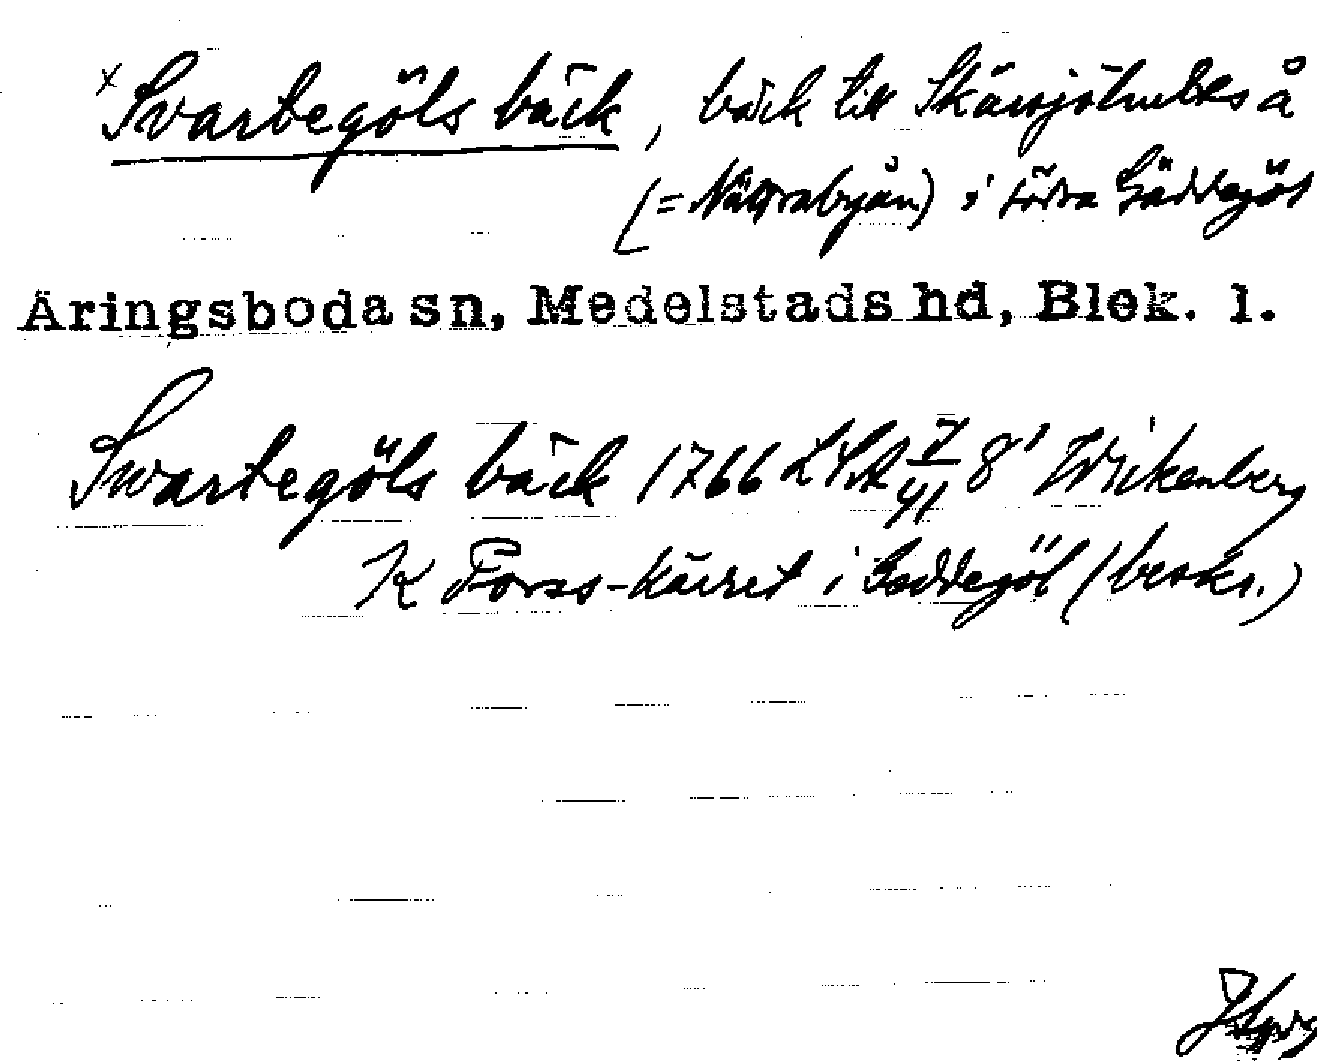 x Svartegöls bäck, bäck till Skärsjömåla å
(= Nättrabyån) i södra Gäddegöl
Äringsboda sn, Medelstads hd, Blek. l.
Swartegöls bäck 1766 LSA 7/41 8' Wikenberg
K Forss-kärret i Gaddegöl (beskr.)